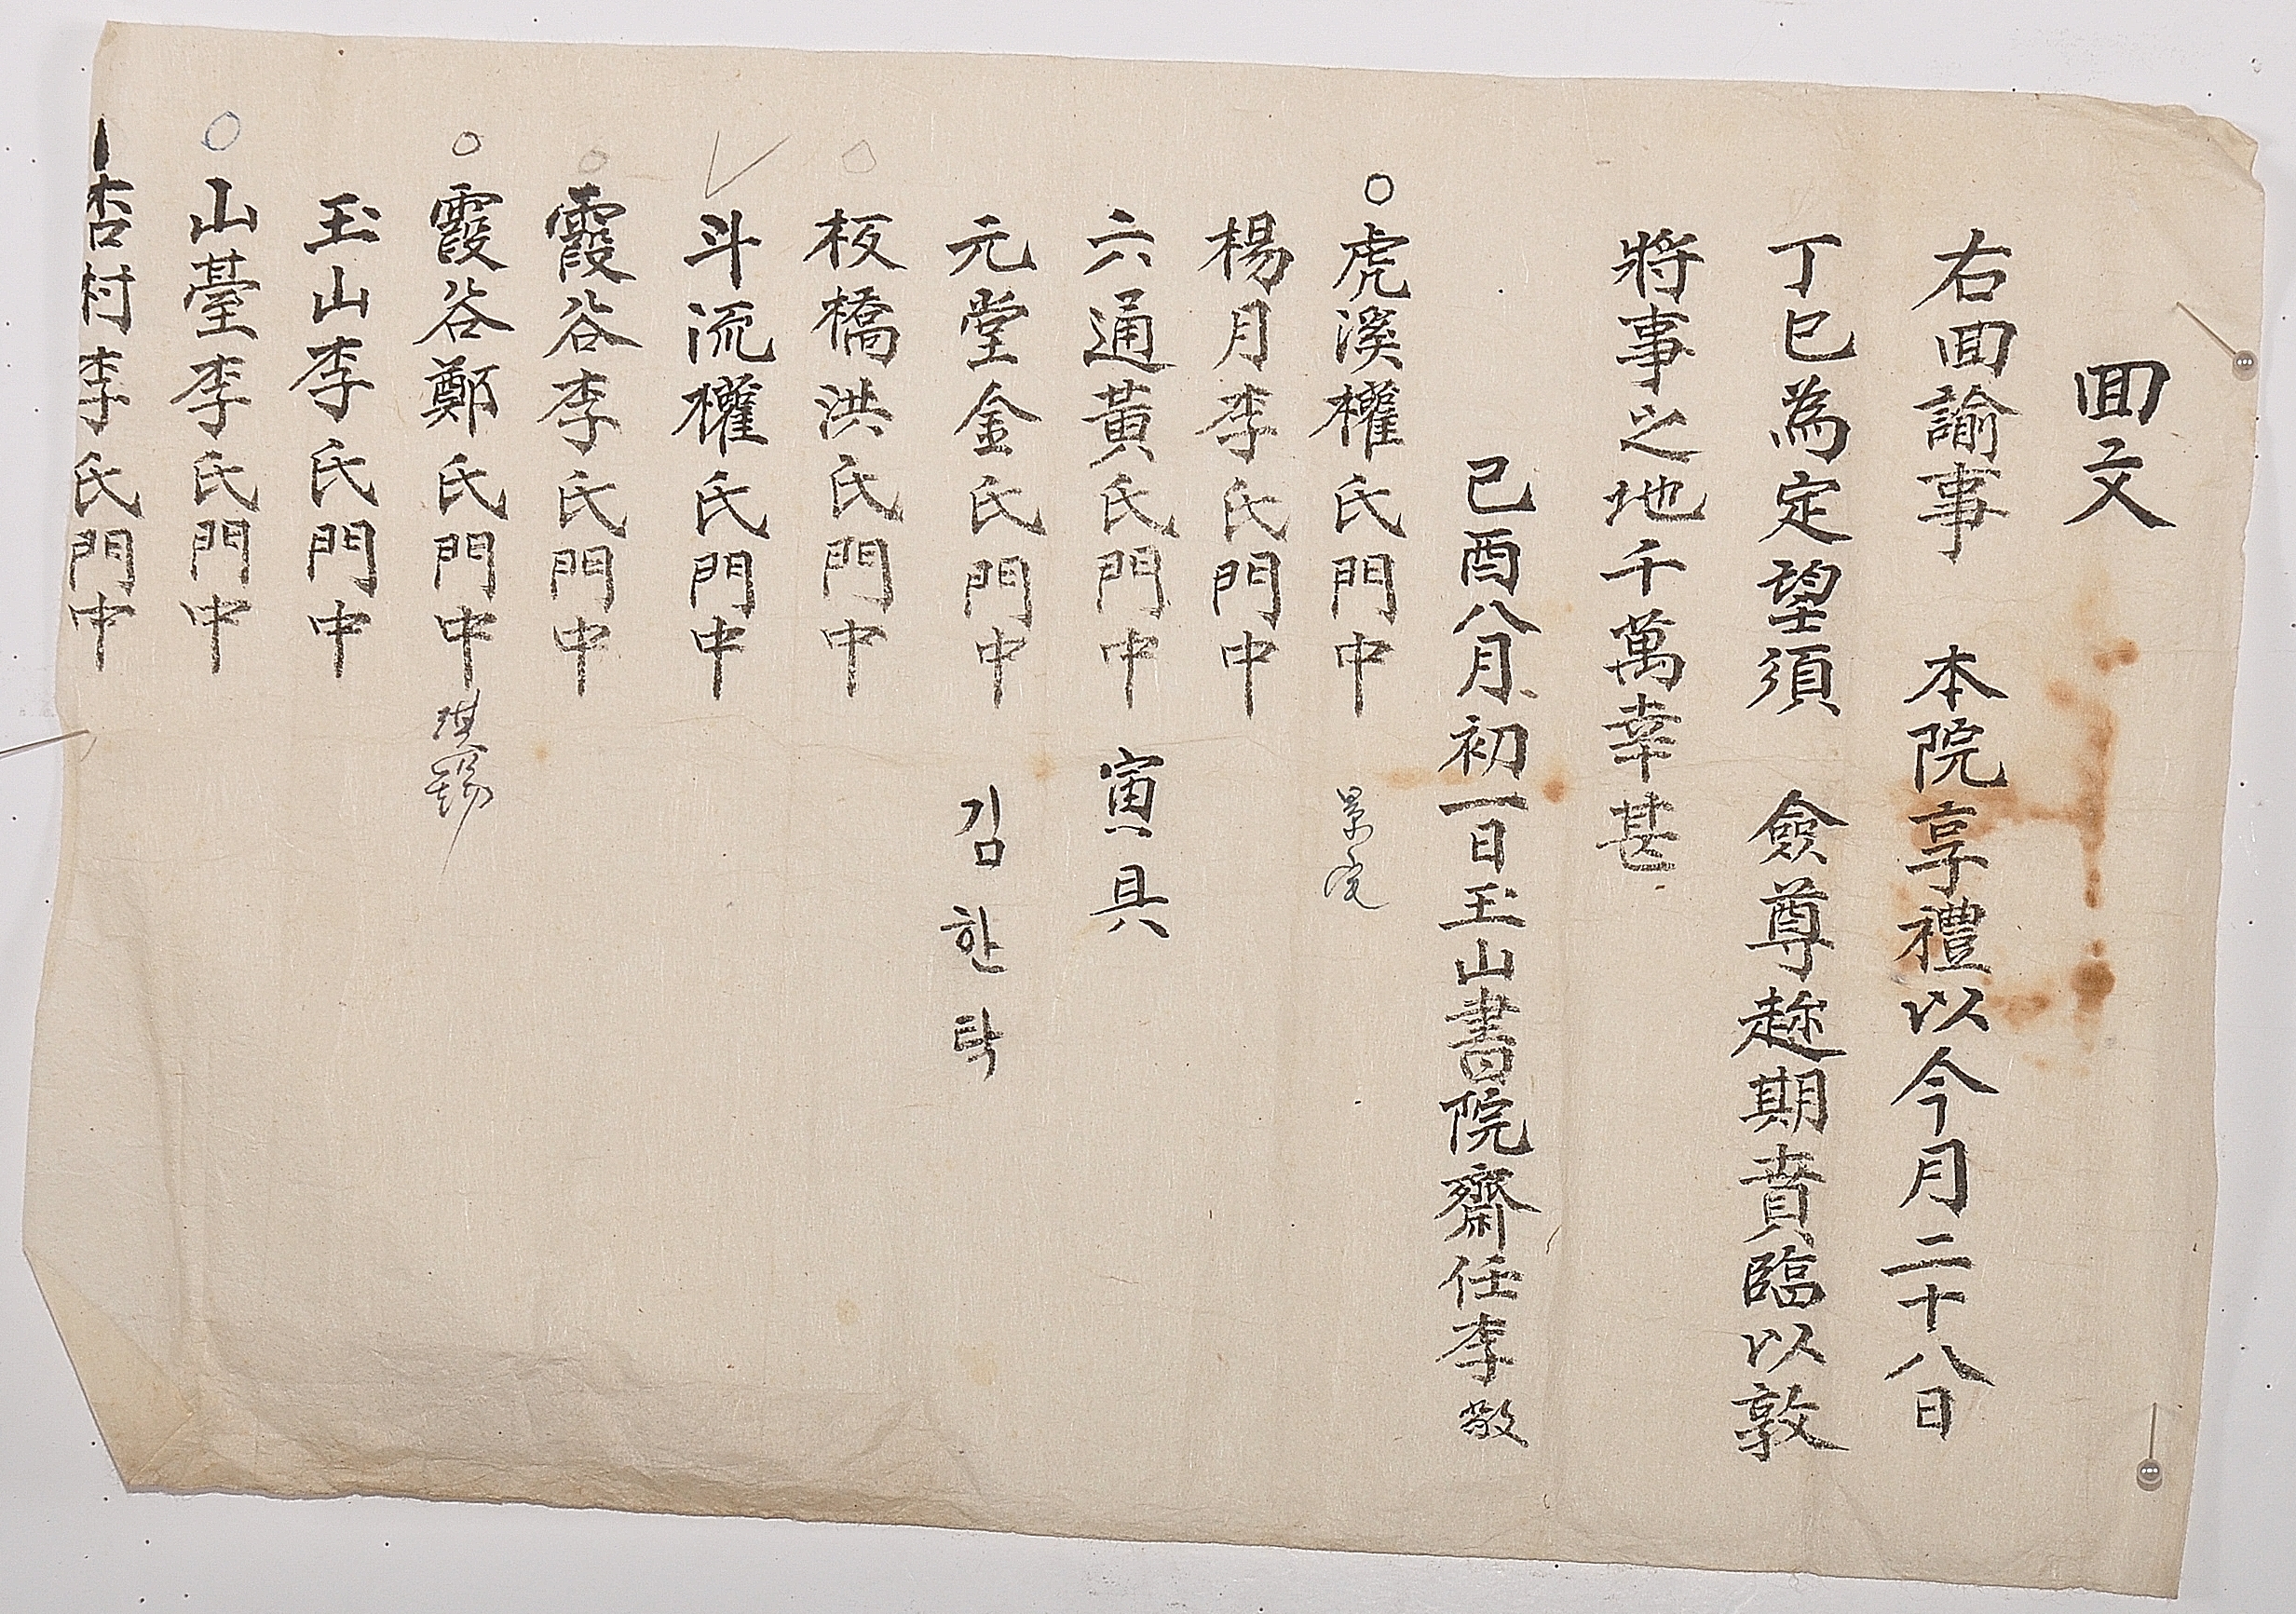 回文
右回諭事 本院享禮以今月二十八日
丁巳為定望須 僉尊趂期賁臨以敦
將事之地千萬幸甚
己酉八月初一日玉山書院齋任李敬
虎溪權氏門中
楊月李氏門中
六通黃氏門中 寅具
元堂金氏門中 김한탁
板橋洪氏門中
斗流權氏門中
霞谷李氏門中
霞谷鄭氏門中 琪錫
玉山李氏門中
山臺李氏門中
杏村李氏門中